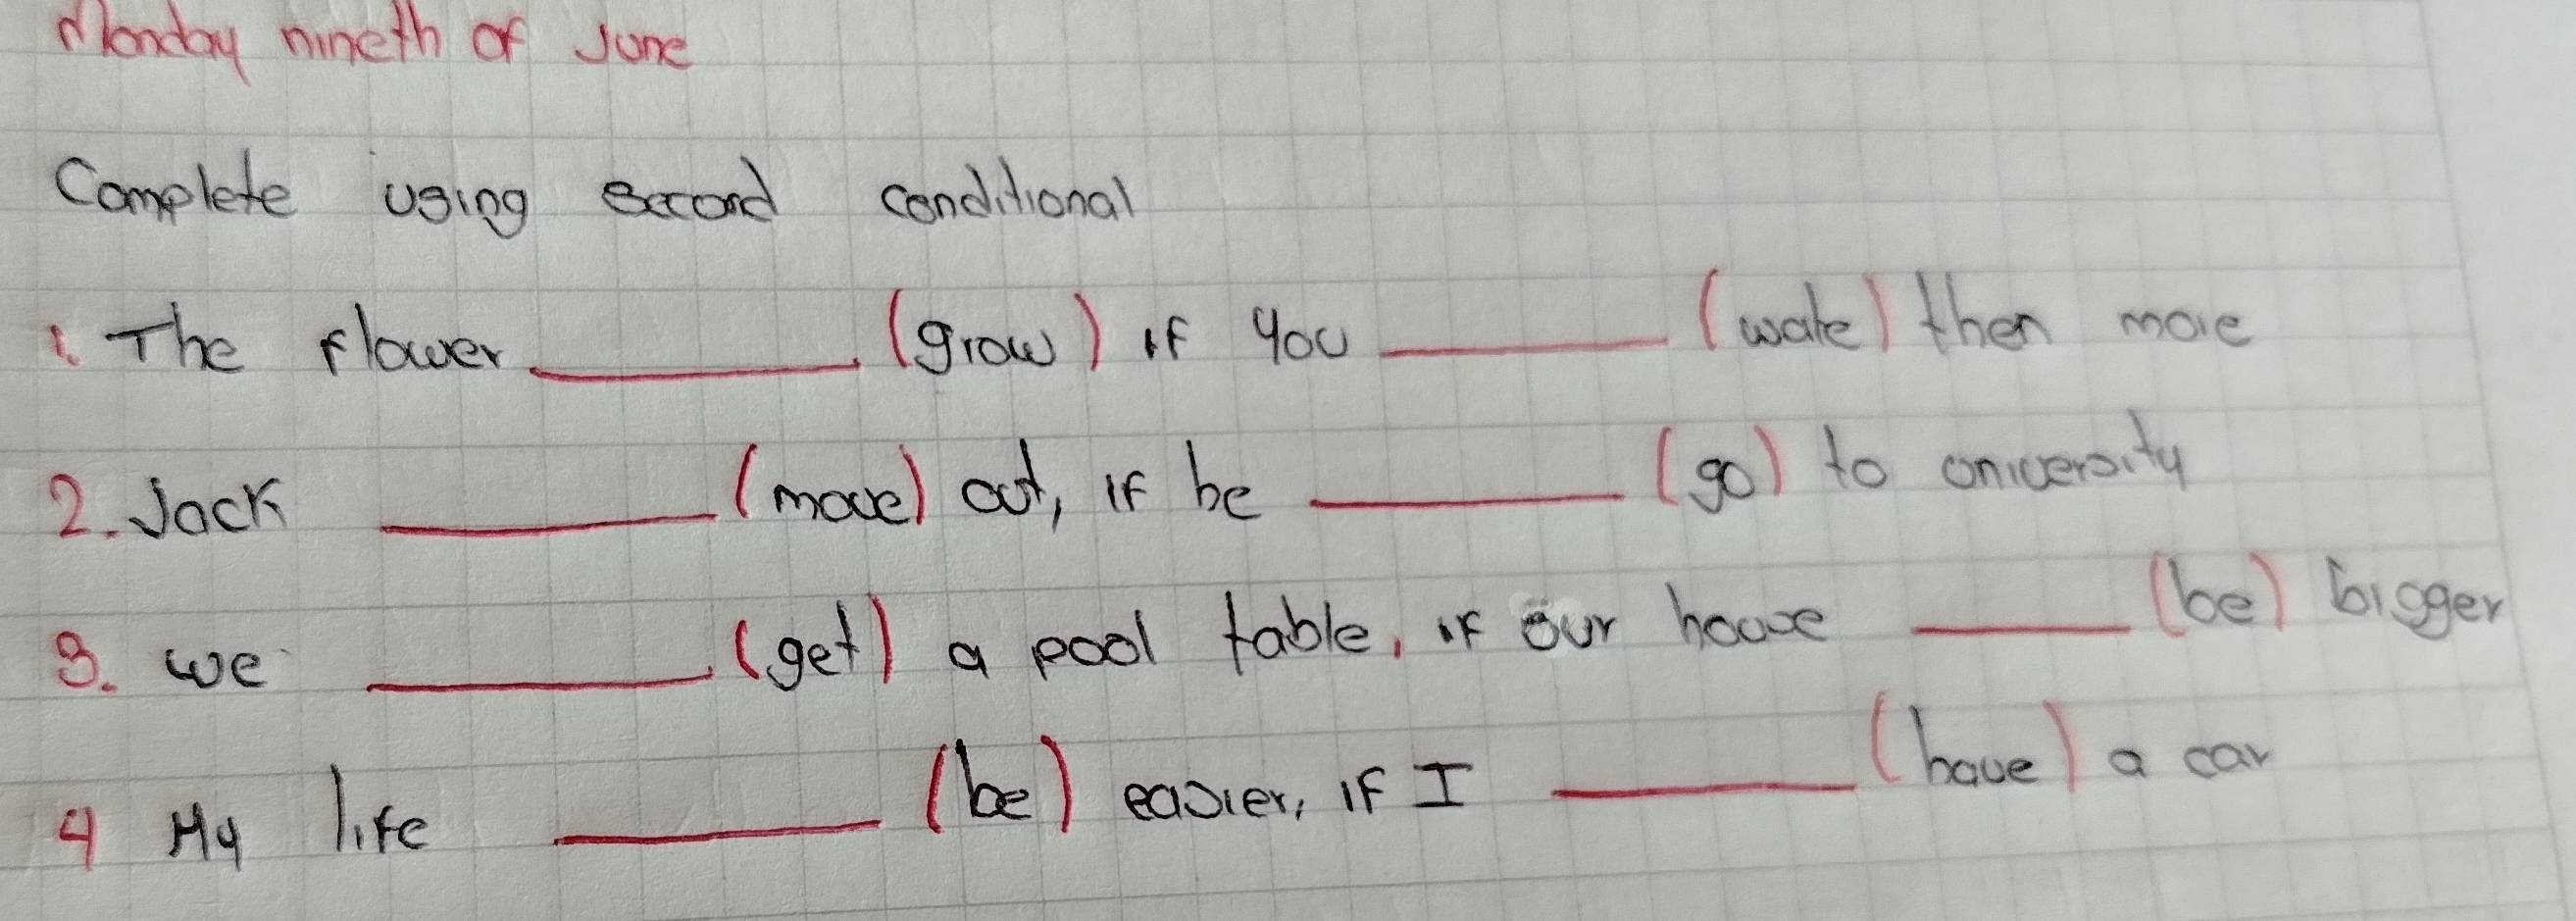 Monday nineth of June
Complete using second conditional
1. The flower ________ (grow) if you ________ (wate) then more
2. Jack ________ (move) out, if he ________ (go) to university
3. we ________ (get) a pool table, if our house ________ (be) bigger
4 My life ________ (be) easier, if I ________ (have) a car